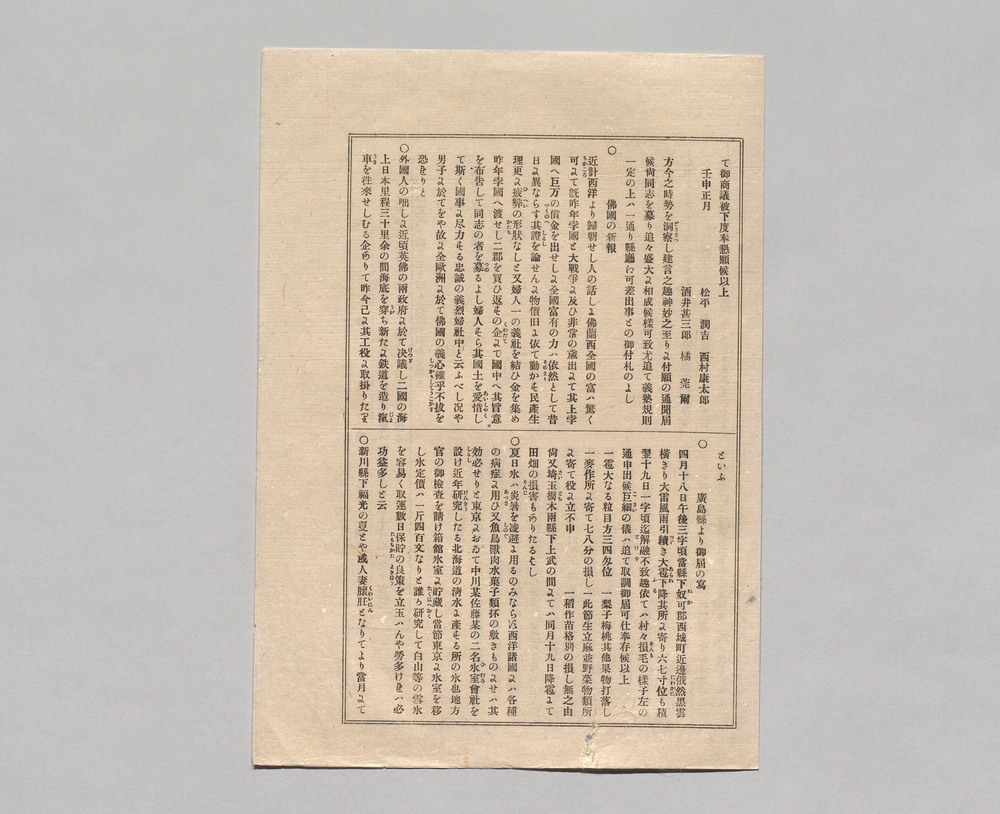 て御商議被下度奉懇願候以上
壬申正月
松平 潤吉 西村康太郎
酒井甚三郎 橘 莞爾
方今之時勢を洞察し建言之趣神妙之至りよ付願の通聞届
候尚同志を募り追々盛大よ相成候樣可致尤追て義塾規則
一定の上ハ一通り縣廳に可差出事との御付札のよし
○ 佛國の新報
近計西洋より歸朝せし人の話しよ佛蘭西全國の富ハ驚く
可よて既昨年孛國と大戰爭よ及ひ非常の歳出よて其上孛
國へ巨万の償金を出せしよ全國富有の力ハ依然として昔
日よ異ならす其證を論せんよ物價旧よ依て動かも民產生
理更よ疲弊の形狀なしと又婦人一の義社を結ひ金を集め
昨年孛國へ渡せし二郡を買ひ返その企よて國中へ其旨意
を布告して同志の者を募るよし婦人そら其國土を愛惜し
て斯く國事よ尽力もる忠誠の義烈婦社中と云ふべし况や
男子よ於てをや故よ全歐洲よ於て佛國の義心確乎不抜を
恐をりと
○外國人の咄しよ近頃英佛の兩政府よ於て决議し二國の海
上日本里程三十里余の間海底を穿ち新たよ鉄道を造り滊
車を徃來せしむる企ありて昨今己よ其工役よ取掛りたま
といふ
○ 廣島縣より御屆の寫
四月十八日午後三字頃當縣下奴可郡西城町近邊俄然黑雲
橫きり大雷風雨引續き大雹下降其所よ寄り六七寸位も積
翌十九日一字頃迄解融不致趣依てハ村々損毛の樣子左の
通申出候巨細の儀ハ追て取調御屆可仕奉存候以上
一雹大なる粒目方三四匁位 一梨子梅桃其他果物打落し
一麥作所よ寄て七八分の損し一此節生立麻並野菜物類所
よ寄て役よ立不申 一稻作苗格別の損し無之由
尙又埼玉栃木兩縣下上武の間よてハ同月十九日降雹よて
田畑の損害もありたるよし
○夏日氷ハ炎暑を凌避よ用るのみならに西洋諸國よハ各種
の病症よ用ひ又魚鳥獸肉水菓子類抔の敷きものよせハ其
効必せりと東京よおゐて中川某佐藤某の二名氷室會社を
設け近年研究したる北海道の清水よ產もる所の氷也地方
官の御檢查を請け箱館氷室よ貯藏し當節東京よ氷室を移
し氷定價ハ一斤四百文なりと誰り研究して白山等の雪氷
を容易く取運數日保貯の良策を立玉ハんや勞多けきハ必
功益多しと云
○新川縣下福光の㕝とや或人妻臃肛となりてより當月よて